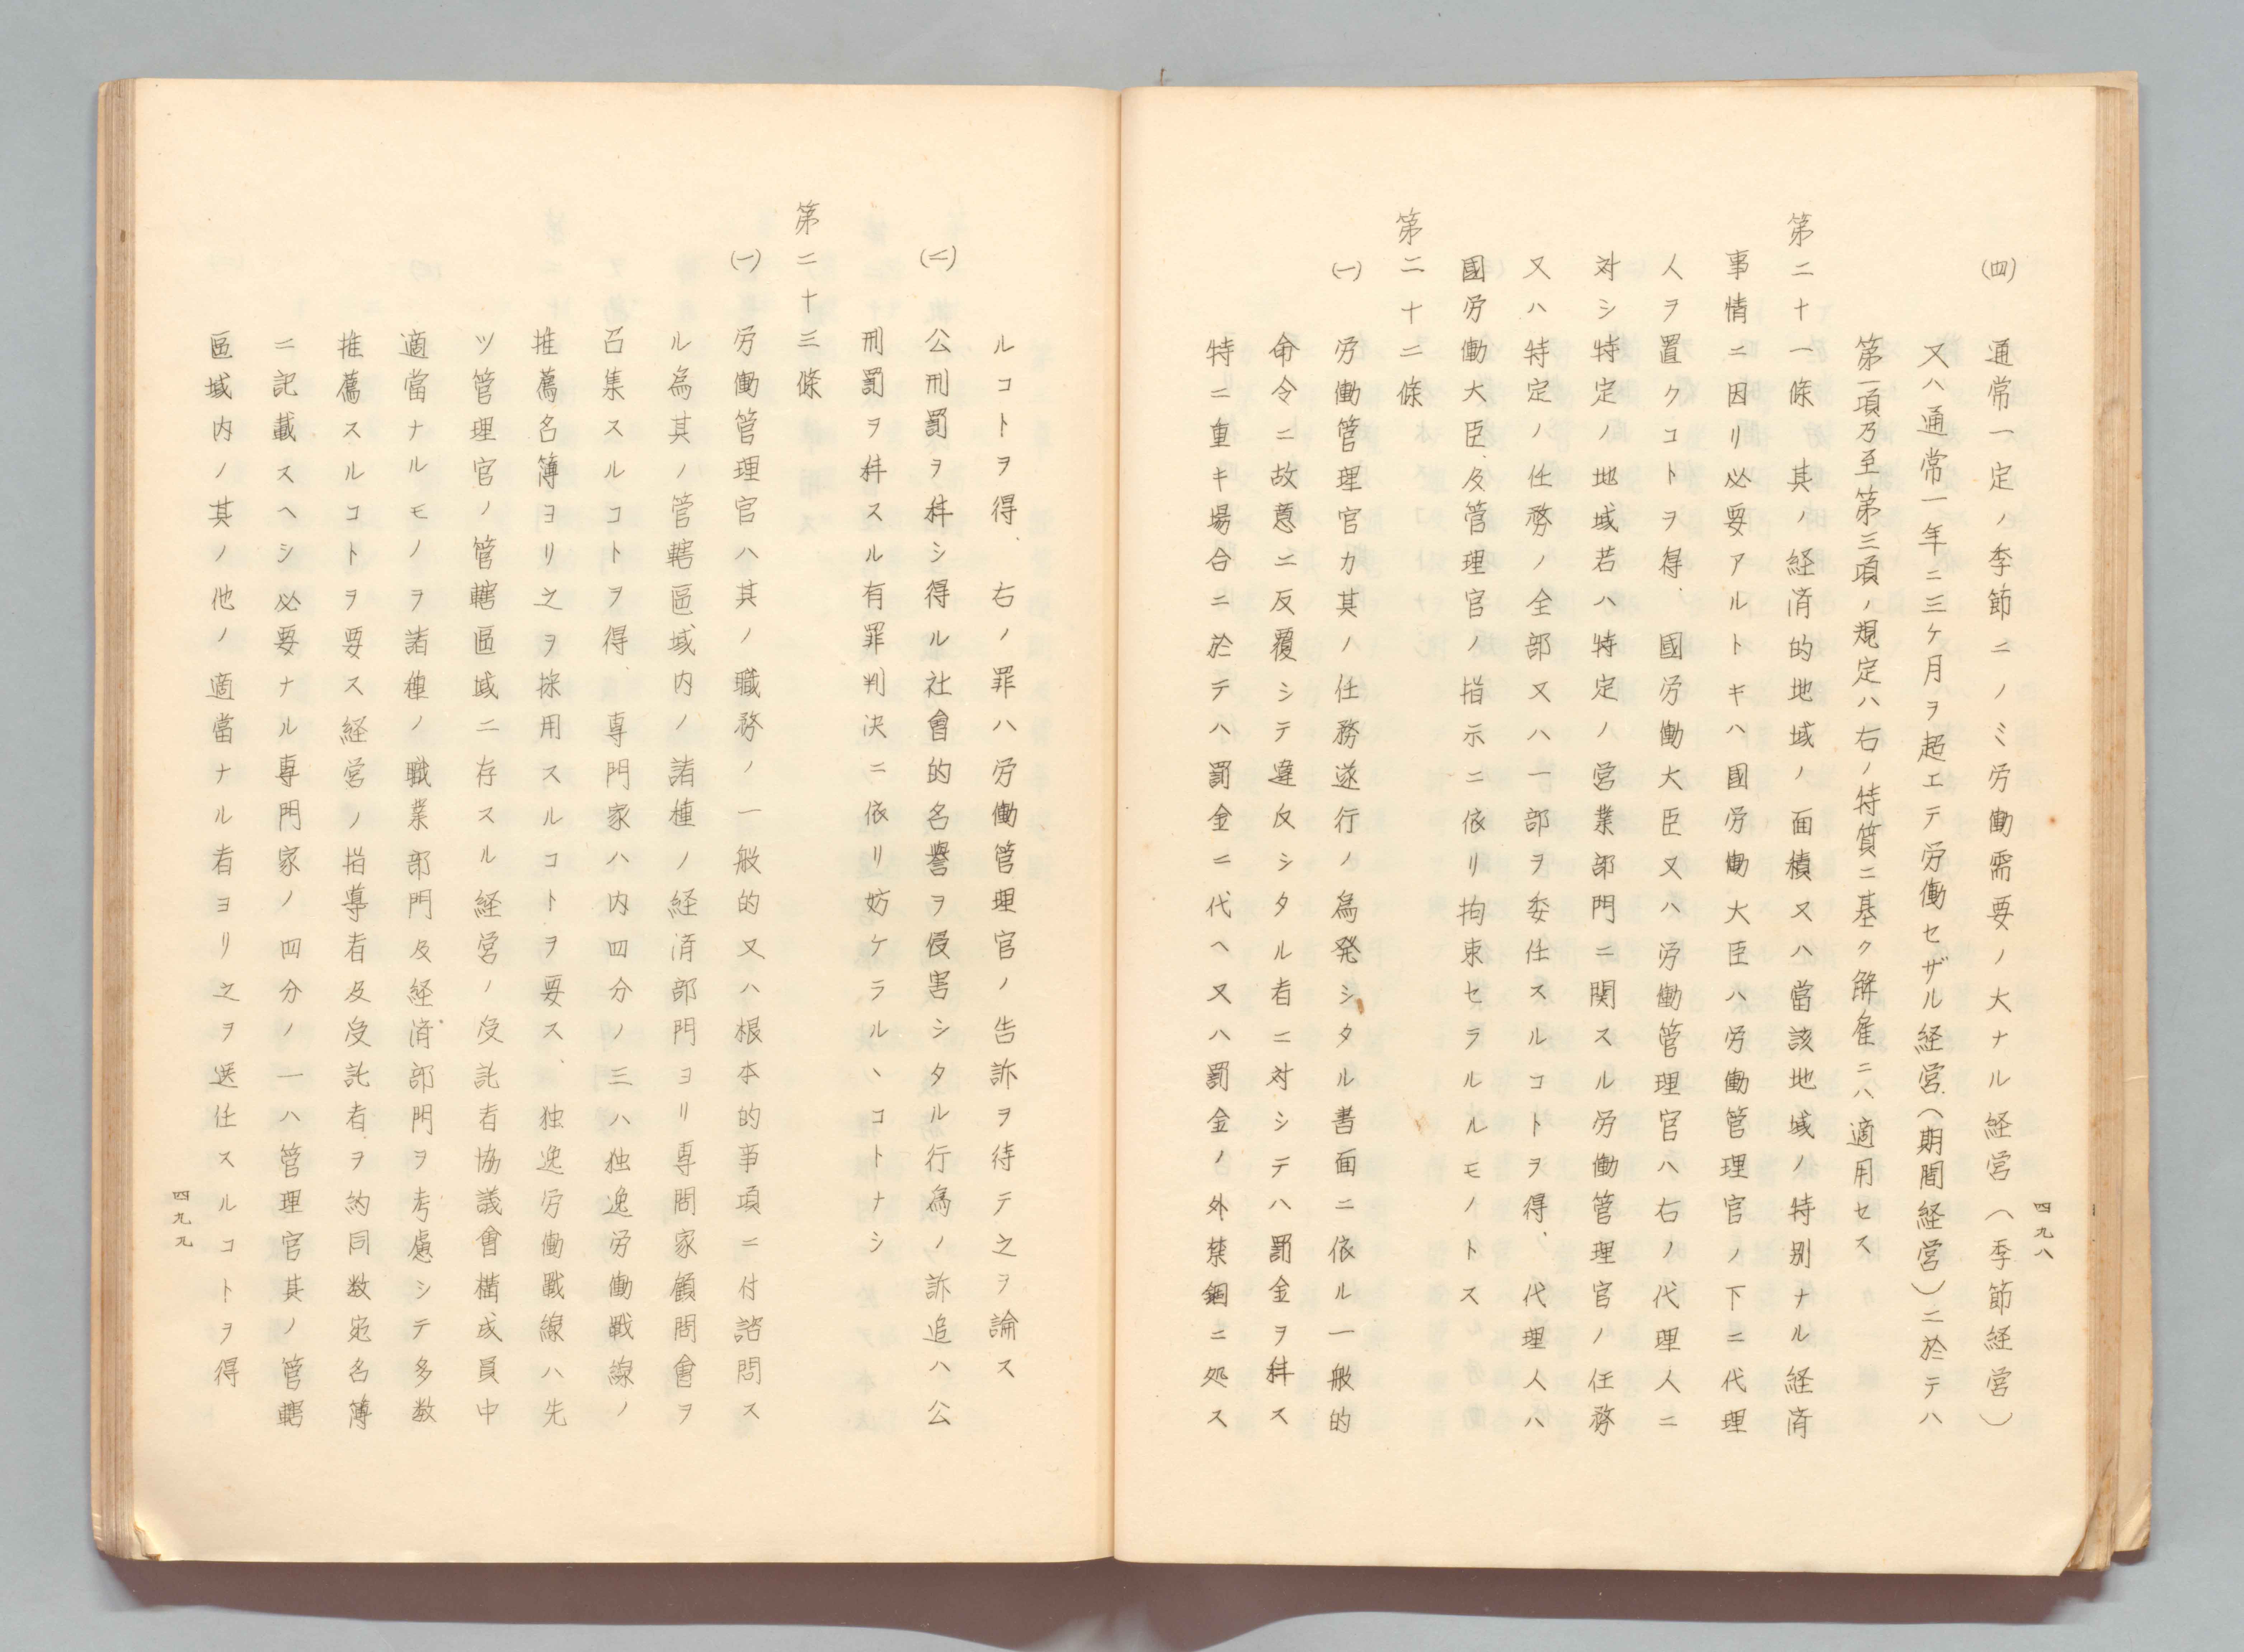 四九八
(四) 通常一定ノ季節ニノミ労働需要ノ大ナル経営(季節経営)
又ハ通常一年ニ三ケ月ヲ超エテ労働セザル経営(期間経営)ニ於テハ
第一項乃至第三項ノ規定ハ右ノ特質ニ基ク解雇ニハ適用セス
第二十一條 其ノ経済的地域ノ面積又ハ當該地域ノ特別ナル経済
事情ニ因リ必要アルトキハ國労働大臣ハ労働管理官ノ下ニ代理
人ヲ置クコトヲ得、國労働大臣又ハ労働管理官ハ右ノ代理人ニ
対シ特定ノ地域若ハ特定ノ営業部門ニ関スル労働管理官ノ任務
又ハ特定ノ任務ノ全部又ハ一部ヲ委任スルコトヲ得、代理人ハ
國労働大臣及管理官ノ指示ニ依リ拘束セラルルモノトス
第二十二條
(一) 労働管理官カ其ノ任務遂行ノ為発シタル書面ニ依ル一般的
命令ニ故意ニ反覆シテ違反シタル者ニ対シテハ罰金ヲ科ス
特ニ重キ場合ニ於テハ罰金ニ代ヘ又ハ罰金ノ外禁錮ニ処ス
ルコトヲ得、右ノ罪ハ労働管理官ノ告訴ヲ待テ之ヲ論ス
(二) 公刑罰ヲ科シ得ル社會的名譽ヲ侵害シタル行為ノ訴追ハ公
刑罰ヲ科スル有罪判決ニ依リ妨ケラルヽコトナシ
第二十三條
(一) 労働管理官ハ其ノ職務ノ一般的又ハ根本的事項ニ付諮問ス
ル為其ノ管轄區域内ノ諸種ノ経済部門ヨリ専問家顧問會ヲ
召集スルコトヲ得、専門家ハ内四分ノ三ハ独逸労働戰線ノ
推薦名簿ヨリ之ヲ採用スルコトヲ要ス、独逸労働戰線ハ先
ツ管理官ノ管轄區域ニ存スル経営ノ受託者協議會構成員中
適當ナルモノヲ諸種ノ職業部門及経済部門ヲ考慮シテ多数
推薦スルコトヲ要ス経営ノ指導者及受託者ヲ約同数宛名簿
ニ記載スヘシ必要ナル専門家ノ四分ノ一ハ管理官其ノ管轄
區域内ノ其ノ他ノ適當ナル者ヨリ之ヲ選任スルコトヲ得
四九九